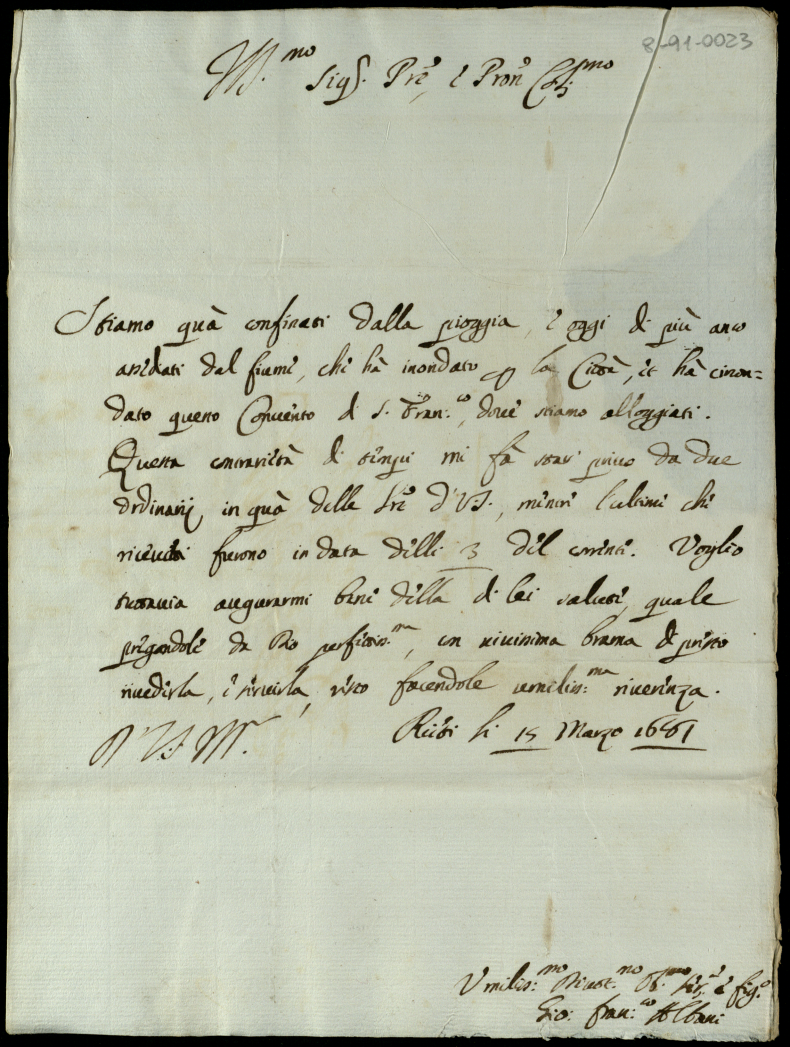 8-91-0023
Ill.mo Sig.r Pre, e Pron Col.mo
Stiamo quà confinati dalla pioggia, e oggi di più anco
assediati dal fiume, che hà inondato la Città, et hà circon=
dato questo Convento di S. Fran.co, dove stiamo alloggiati.
Questa contrarietà di tempi mi fà star privo da due
ordinarij in quà delle lre d'VS., mentre l'ultime che
ricevei furono in data delli 3 del corrente. Voglio
tuttavia augurarmi bene della di lei salute, quale
pregandole da Dio perfettiss.ma, con vivissima brama di presto
rivederla, e servirla, resto facendole umiliss.ma riverenza.
D'VS Ill.ma
Rieti li 15 Marzo 1681
Umiliss.mo Devot.mo Ob.mo Ser.e e fig.o
Gio: Fran.co Albani